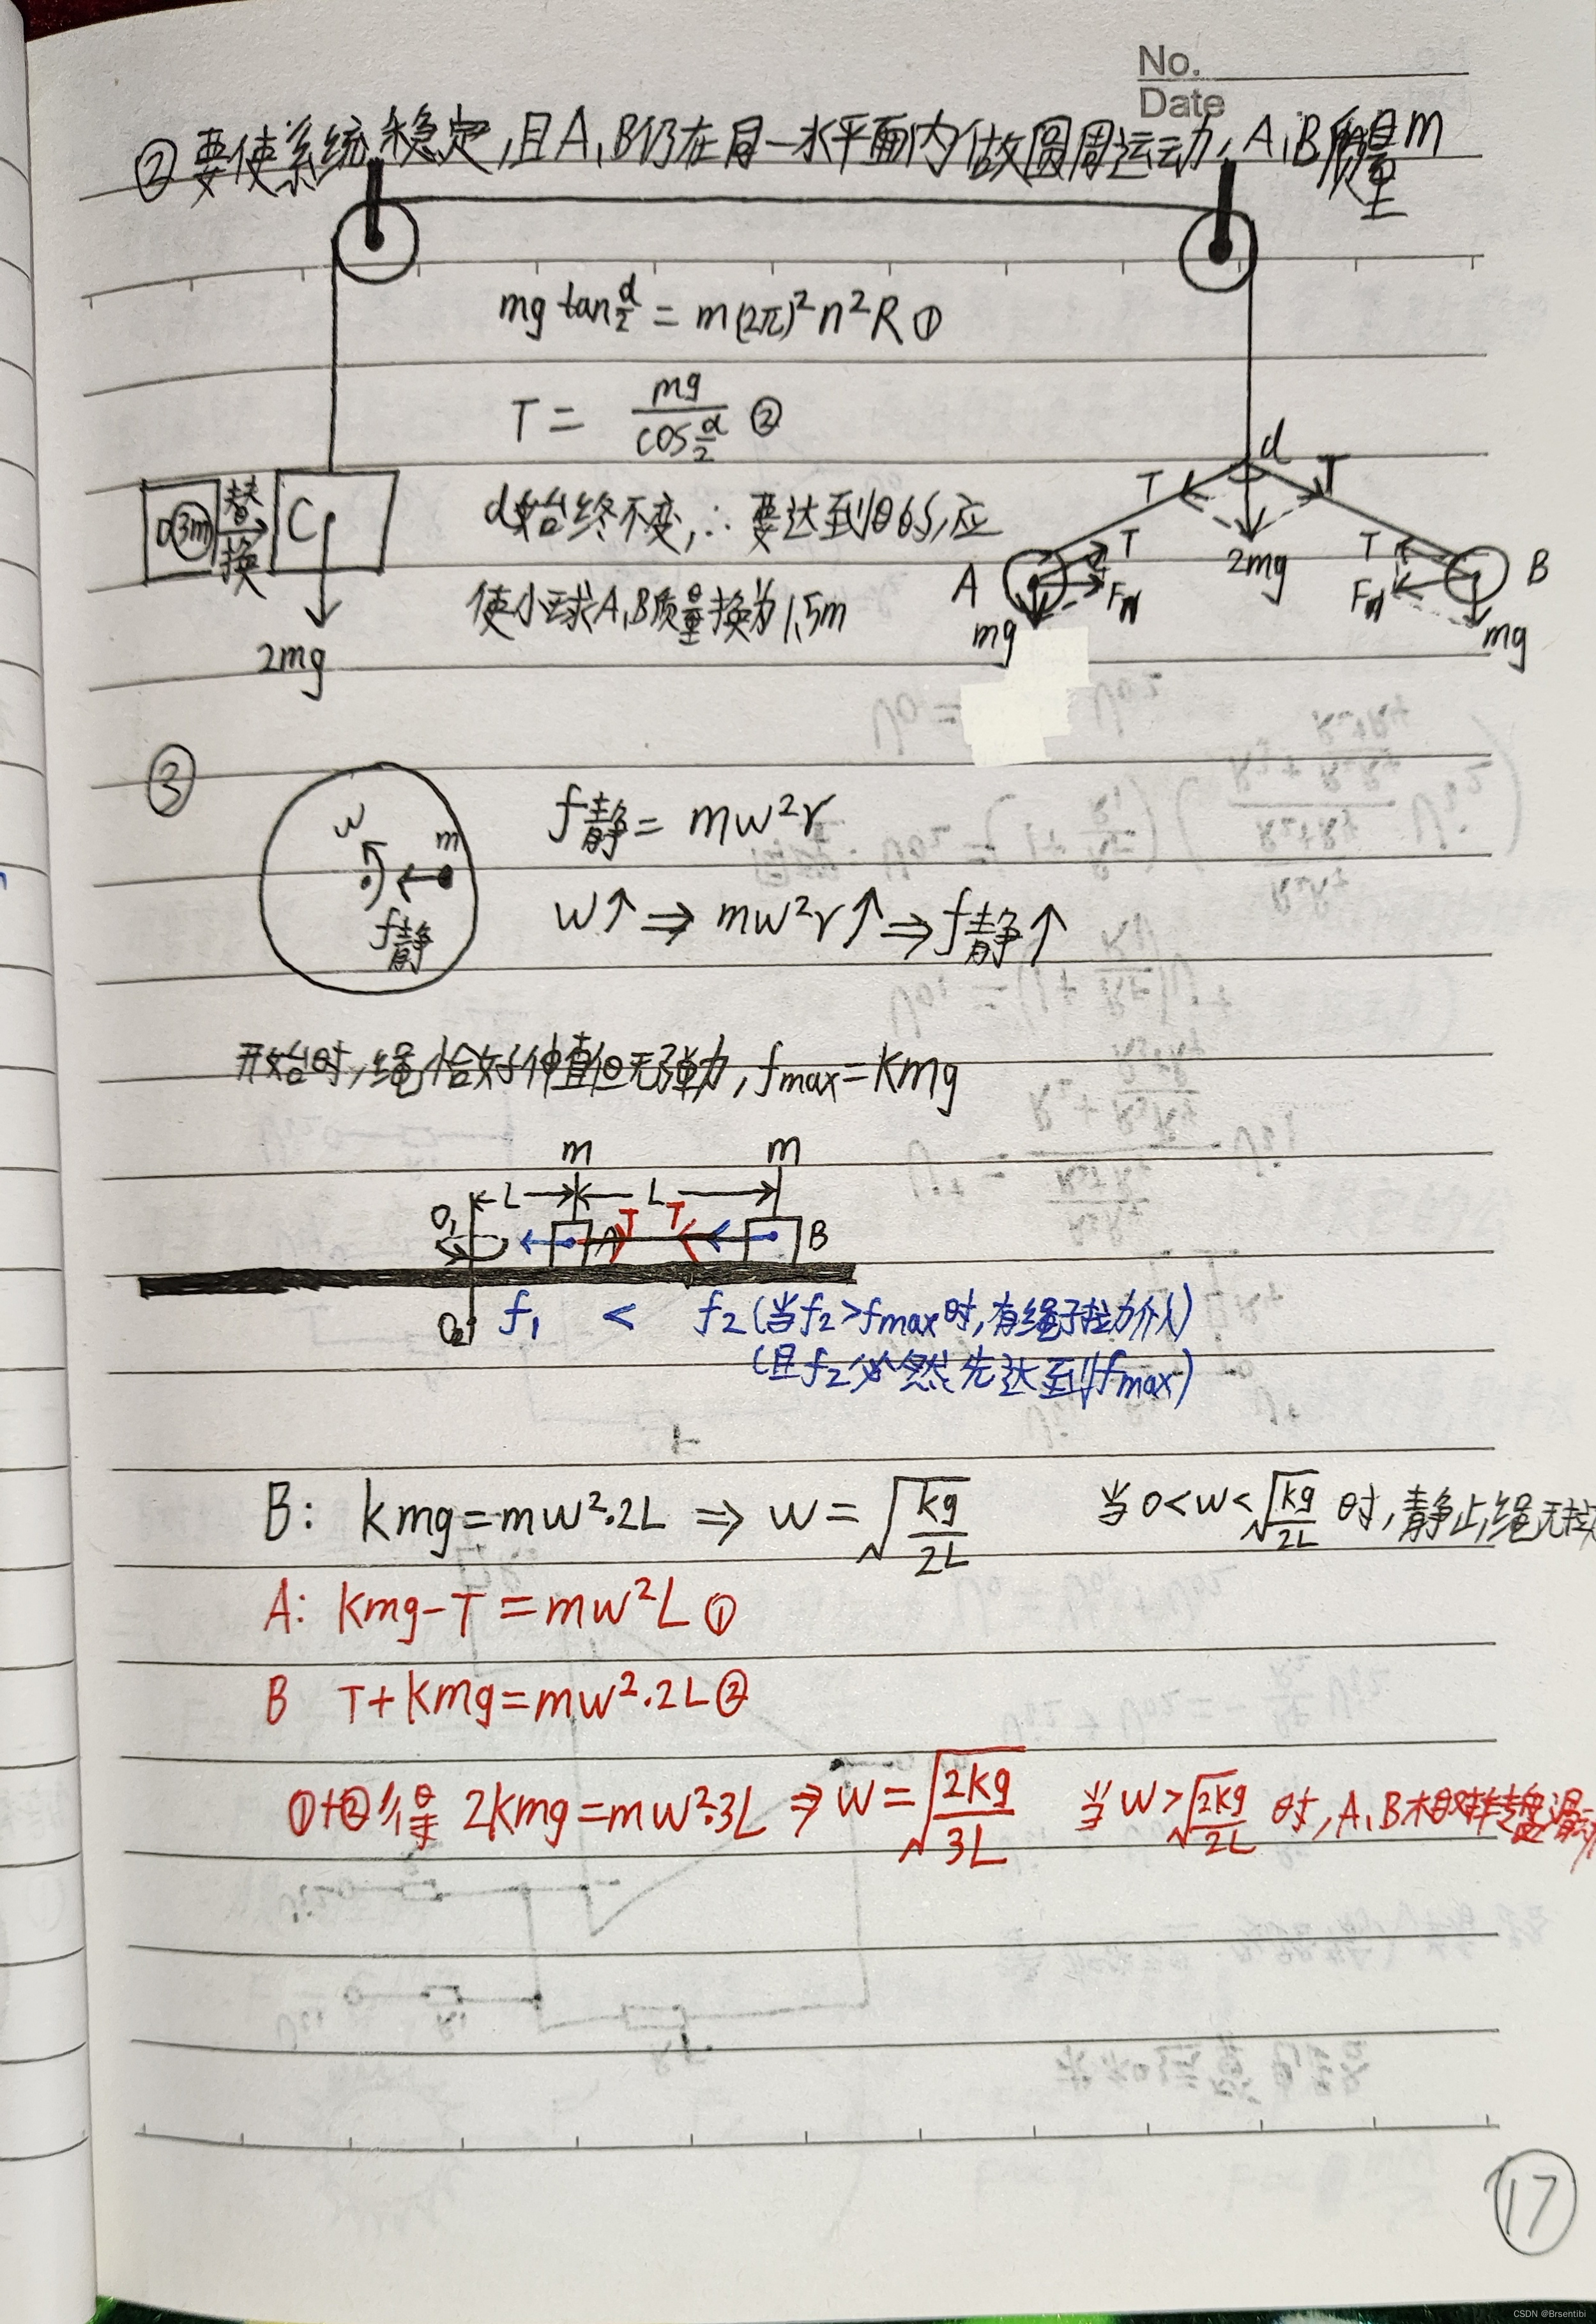 No.
Date
②要使系统稳定,且A,B仍在同一水平面内做圆周运动,A,B质量m
mg tan α/2 = m(2π)²n²R ①
T = mg/cos α/2 ②
α始终不变,∴要达到目的,应
使小球A,B质量换为1.5m
D 3m 替换 C
2mg
α
T T
2mg
A T Fn mg
T Fn B mg
③
w m
f静
f静 = mw²r
w↑ ⇒ mw²r↑ ⇒ f静↑
开始时,绳恰好伸直但无弹力,fmax=kmg
m m
L L
O₁ A T T B
O₂ f₁ < f₂(当f₂>fmax时,有绳子拉力介入)
(且f₂必然先达到fmax)
B: kmg=mw²·2L ⇒ w=√(kg/2L) 当0<w<√(kg/2L)时,静止,绳无拉
A: kmg-T=mw²L ①
B T+kmg=mw²·2L ②
①+②得 2kmg=mw²·3L ⇒ w=√(2kg/3L) 当w>√(2kg/2L)时,A,B相对转盘滑动
17
CSDN @Brsentibi